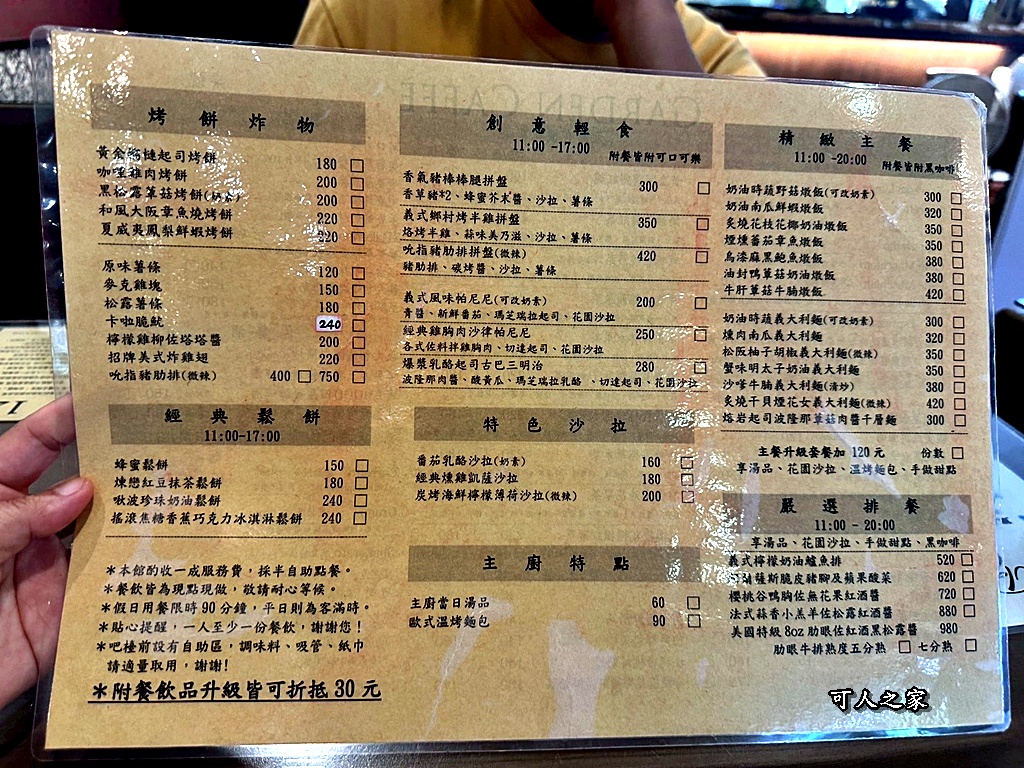 GARDEN CAFFE
烤餅炸物
黃金 起司烤餅 180
咖哩雞肉烤餅 200
黑松露蕈菇烤餅(奶素) 200
和風大阪章魚燒烤餅 220
夏威夷鳳梨鮮蝦烤餅 220
原味薯條 120
麥克雞塊 150
松露薯條 180
卡啦脆魷 240
檸檬雞柳佐塔塔醬 200
招牌美式炸雞翅 220
吮指豬肋排(微辣) 400 750
經典鬆餅
11:00-17:00
蜂蜜鬆餅 150
煉戀紅豆抹茶鬆餅 180
啾波珍珠奶油鬆餅 240
搖滾焦糖香蕉巧克力冰淇淋鬆餅 240
＊本館酌收一成服務費，採半自助點餐。
＊餐飲皆為現點現做，敬請耐心等候。
＊假日用餐限時90分鐘，平日則為客滿時。
＊貼心提醒，一人至少一份餐飲，謝謝您！
＊吧檯前設有自助區，調味料、吸管、紙巾
請適量取用，謝謝!
＊附餐飲品升級皆可折抵 30 元
創意輕食
11:00 -17:00 附餐皆附可口可樂
香氣豬棒棒腿拼盤 300
香草豬*2、蜂蜜芥末醬、沙拉、薯條
義式鄉村烤半雞拼盤 350
烙烤半雞、蒜味美乃滋、沙拉、薯條
吮指豬肋排拼盤(微辣) 420
豬肋排、碳烤醬、沙拉、薯條
義式風味帕尼尼(可改奶素) 200
青醬、新鮮番茄、瑪芝瑞拉起司、花園沙拉
經典雞胸肉沙律帕尼尼 250
各式佐料拌雞胸肉、切達起司、花園沙拉
爆漿乳酪起司古巴三明治 280
波隆那肉醬、酸黃瓜、瑪芝瑞拉乳酪、切達起司、花園沙拉
特色沙拉
番茄乳酪沙拉(奶素) 160
經典燻雞凱薩沙拉 180
炭烤海鮮檸檬薄荷沙拉(微辣) 200
主廚特點
主廚當日湯品 60
歐式溫烤麵包 90
精緻主餐
11:00 -20:00 附餐皆附黑咖啡
奶油時蔬野菇燉飯(可改素) 300
奶油南瓜鮮蝦燉飯 320
炙燒花枝花椰奶油燉飯 350
煙燻蕃茄章魚燉飯 350
烏漆麻黑鮑魚燉飯 380
油封鴨蕈菇奶油燉飯 380
牛肝蕈菇牛腩燉飯 420
奶油時蔬義大利麵(可改奶素) 300
燻肉南瓜義大利麵 320
松阪柚子胡椒義大利麵(微辣) 350
蟹味明太子奶油義大利麵 350
沙嗲牛腩義大利麵(清炒) 380
炙燒干貝煙花女義大利麵(微辣) 420
熔岩起司波隆那蕈菇肉醬千層麵 300
主餐升級套餐加 120元 份數
享湯品、花園沙拉、溫烤麵包、手做甜點
嚴選排餐
11:00 - 20:00
享湯品、花園沙拉、手做甜點、黑咖啡
義式檸檬奶油鱸魚排 520
薩斯脆皮豬腳及蘋果酸菜 620
櫻桃谷鴨胸佐無花果紅酒醬 720
法式蒜香小羔羊佐松露紅酒醬 880
美國特級 8oz 肋眼佐紅酒黑松露醬 980
肋眼牛排熟度五分熟 七分熟
可人之家